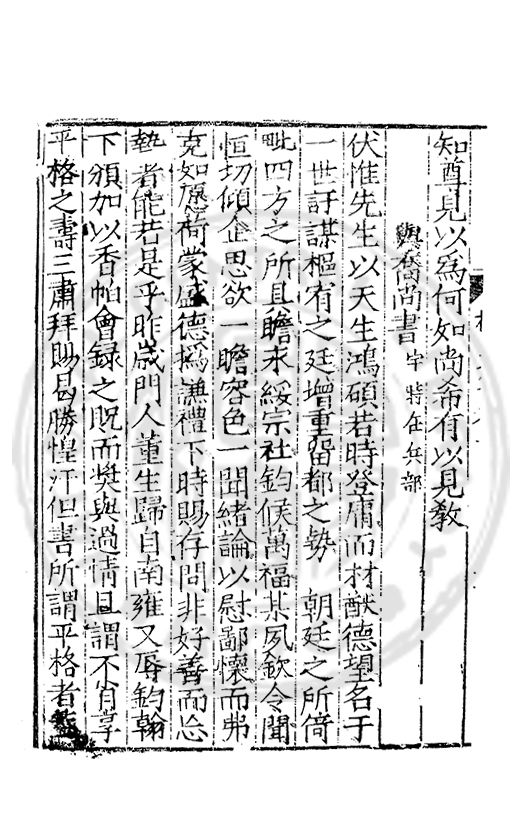 知尊見以爲何如尚希有以見教
與喬尚書宇特任兵部
伏惟先生以天生鴻碩若時登庸而材猷德望名于
一世訏謀樞宥之廷增重留都之勢　朝廷之所倚
毗四方之所具瞻永綏宗社鈞候萬福某夙欽令聞
恒切傾企思欲一瞻容色一聞緒論以慰鄙懷而弗
克如願荷蒙盛德撝謙禮下時賜存問非好善而忘
埶者能若是乎昨歲門人董生歸自南雍又辱鈞翰
下頒加以香帕會録之貺而奬與過情且謂不肖享
平格之壽三肅拜賜曷勝惶汗但書所謂平格者